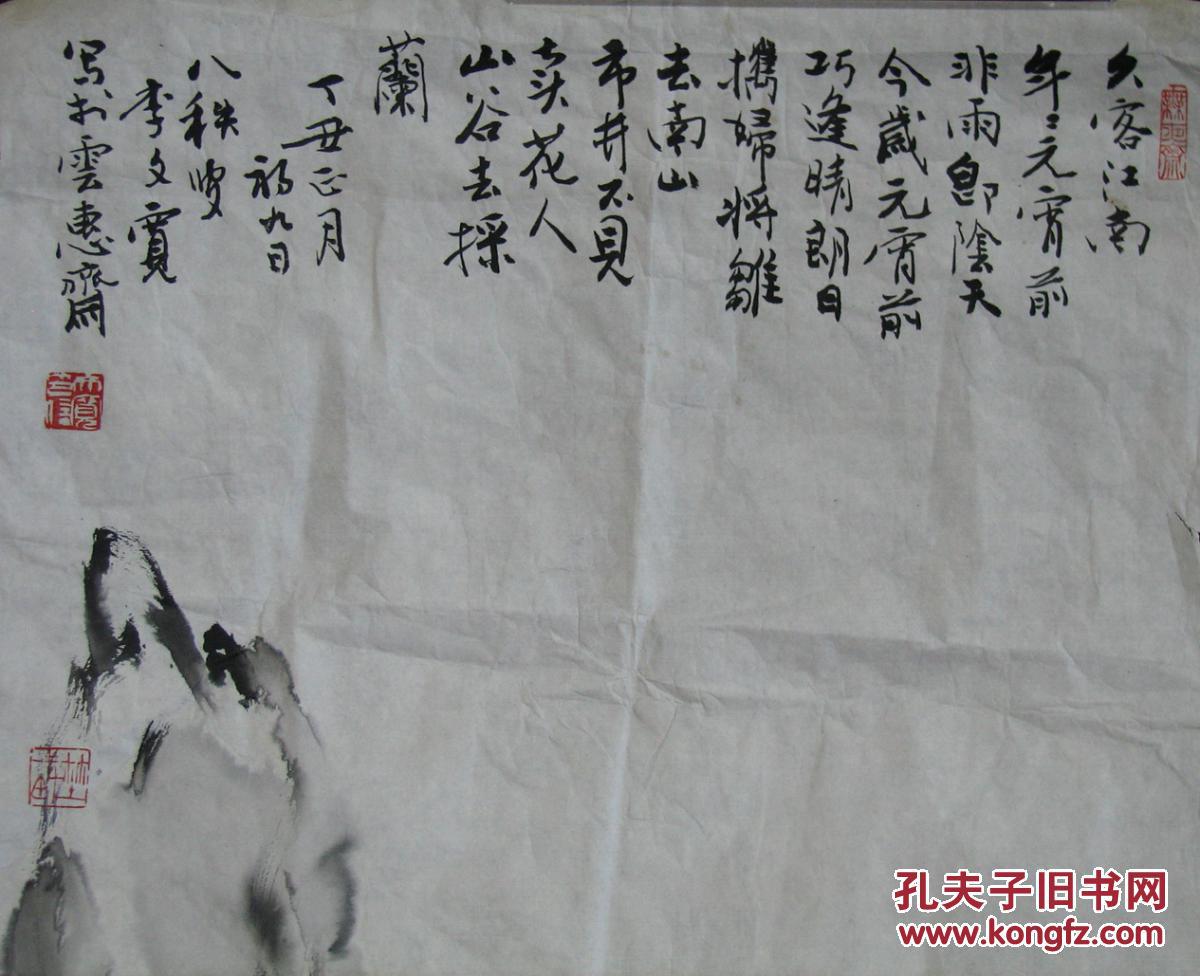 久客江南
年〻元宵前
非雨即陰天
今歲元宵前
巧逢晴朗日
攜婦將雛
去南山
市井不見
卖花人
山谷去採
蘭
丁丑正月
初九日
八秩叟
李文寶
写於雲惠齋
孔夫子旧书网
www.kongfz.com